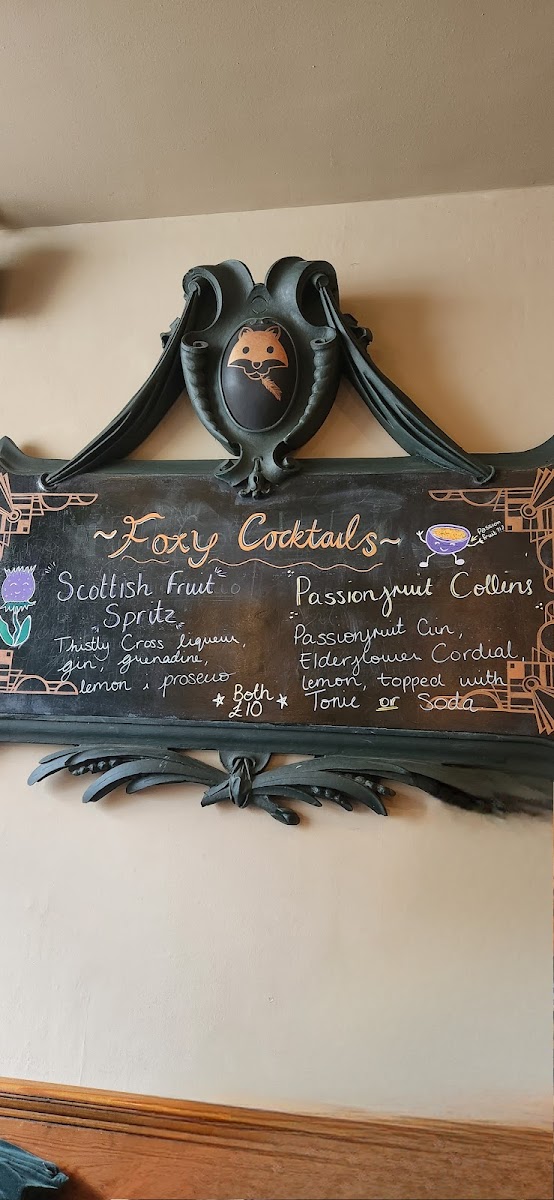 ~Foxy Cocktails~
passion
fruit?!
Scottish Fruit
Spritz
Thistly Cross liqueur,
gin, grenadine,
lemon, prosecco
Passionfruit Collins
Passionfruit Gin,
Elderflower Cordial,
lemon, topped with
Tonic or Soda
Both
£10